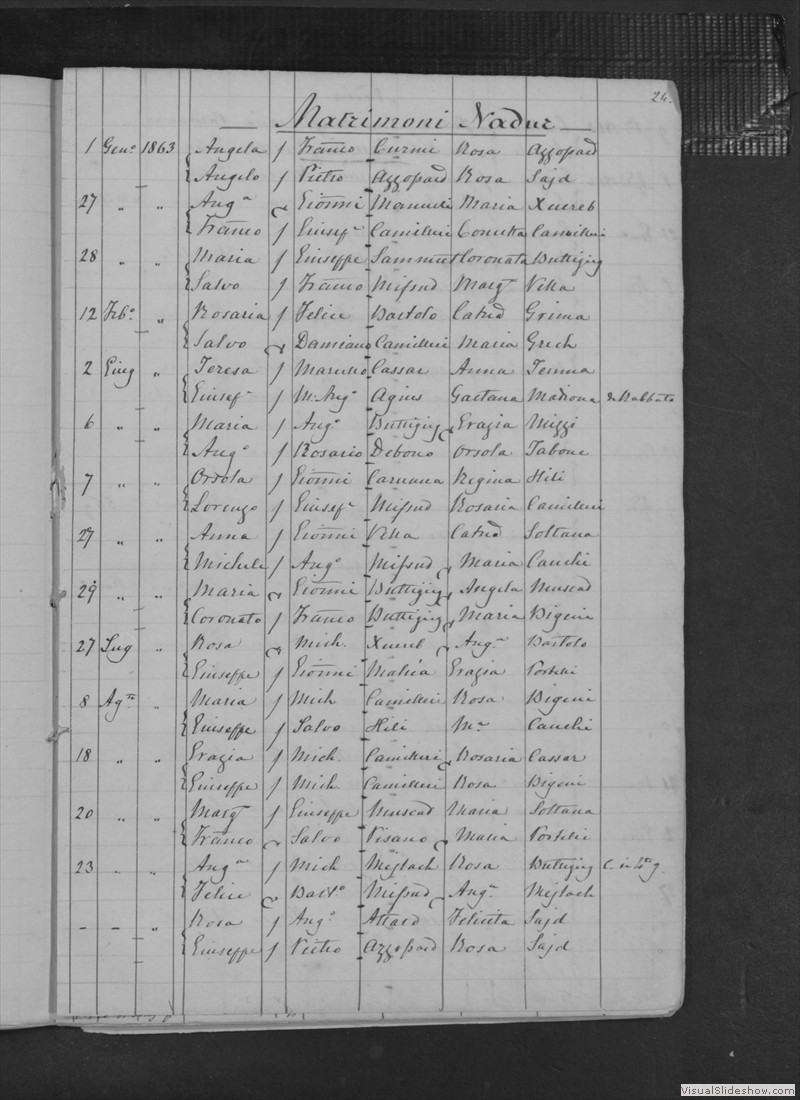 24.
Matrimoni Nadur
1 Genº 1863 Angela f Franco Curmi Rosa Azzopard
Angelo f Pietro Azzopard Rosa Sajd
27 " " Angª Giōnni Mamueli Maria Xuereb
Franco f Giusefᵉ Camilleri Concetta Camilleri
28 " " Maria f Giuseppe Sammut Coronata Buttigieg
Salvo f Franco Mifsud Margᵗ Vella
12 Febº " Rosaria f Felice Bartolo Catrid Grima
Salvo Damiano Camilleri Maria Grech
2 Giug " Teresa f Cassar Anna
Giusefᵉ f M. Angº Agius Gaetana de Rabbato
6 " " Maria f Angº Buttigieg Grazia Mizzi
Angº f Rosario Debono Orsola Tabone
7 " " Orsola f Giōnni Caruana Regina Hili
Lorenzo f Giusefᵉ Mifsud Rosaria Camilleri
27 " " Anna f Giōnni Vella Catrid Soltana
Michele f Angº Mifsud Maria Cauchi
29 " " Maria Giōnni Buttigieg Angela Muscad
Coronato f Franco Buttigieg Maria Bigeni
27 Lug " Rosa Mich. Xuereb Angª Bartolo
Giuseppe f Giōnni Grazia Portelli
8 Agᵗᵒ " Maria f Mich Camilleri Rosa Bigeni
Giuseppe f Salvo Hili Mª Cauchi
18 " " Grazia f Mich. Camilleri Rosaria Cassar
Giuseppe f Mich Camilleri Rosa Bigeni
20 " " Margᵗ f Giuseppe Muscad Maria Soltana
Franco Salvo Pisano Maria Portelli
23 " " Angª f Mich Mejlach Rosa Buttigieg
Felice Bartº Mifsud Angª Mejlach
- - " Rosa f Angº Attard Felicita Sajd
Giuseppe f Pietro Azzopard Rosa Sajd
VisualSlideshow.com